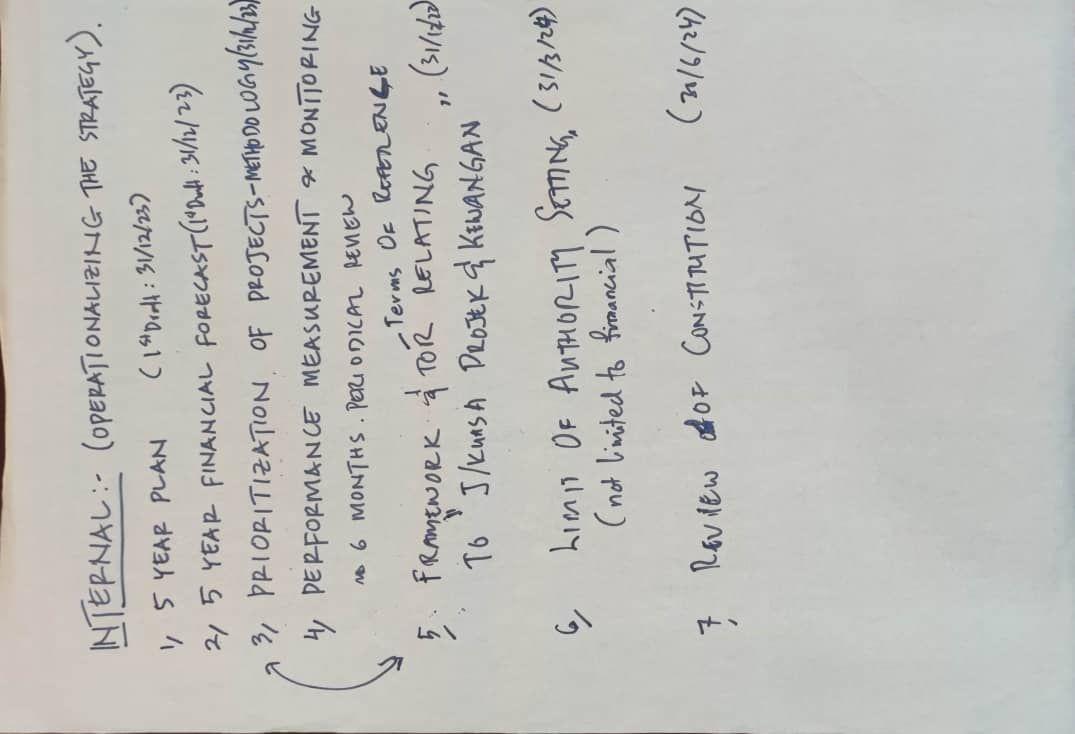 INTERNAL:- (OPERATIONALIZING THE STRATEGY).
1, 5 YEAR PLAN (1st Draft: 31/12/23)
2, 5 YEAR FINANCIAL FORECAST (1st Draft: 31/12/23)
3, PRIORITIZATION OF PROJECTS-METHODOLOGY (31/12/23)
4, PERFORMANCE MEASUREMENT & MONITORING
6 MONTHS PERIODICAL REVIEW
- Terms OF REFERENCE
5, FRAMEWORK & TOR RELATING
TO "J/KUASA PROJEK & KEWANGAN" (31/12/23)
6, LIMIT OF AUTHORITY SETTING, (31/3/24)
(not limited to financial)
7, REVIEW OF CONSTITUTION (/6/24)